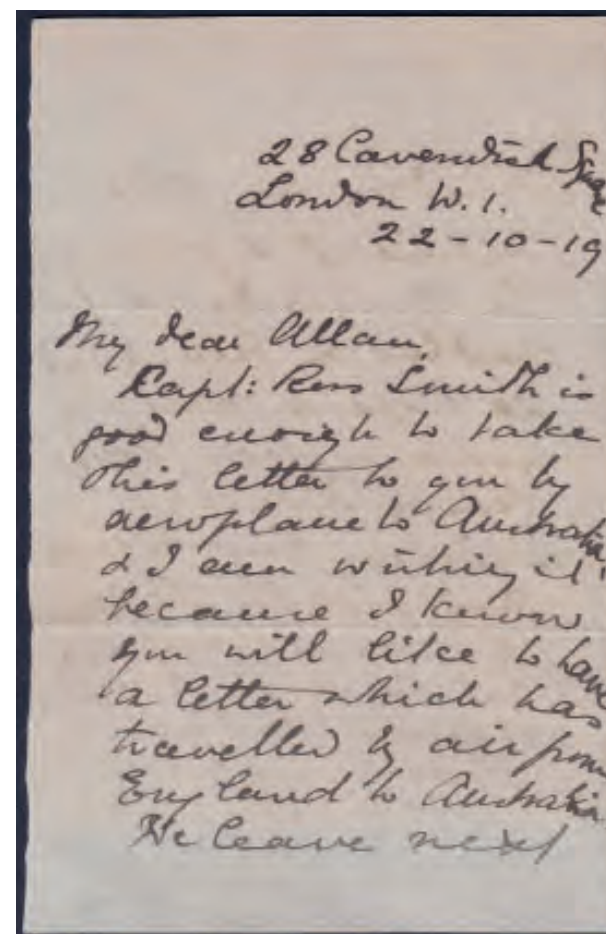 28 Cavendish Square
London W.1.
22-10-19
My dear Allan,
Capt: Ross Smith is
good enough to take
this letter to you by
aeroplane to Australia
& I am writing it
because I know
you will like to have
a letter which has
travelled by air from
England to Australia
He leave next